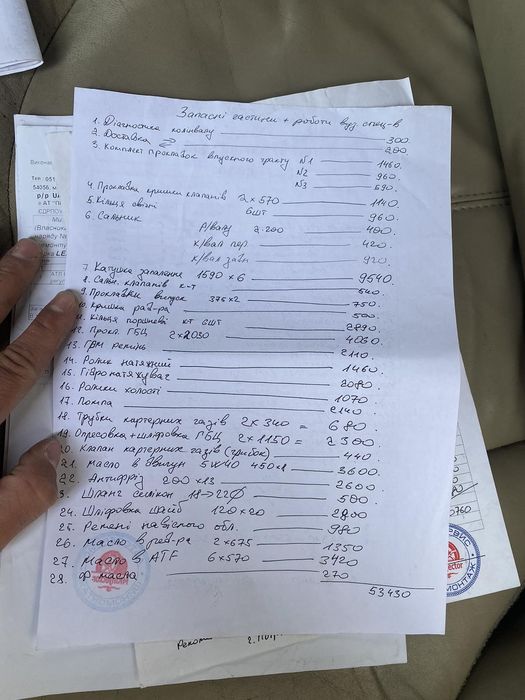 Запасні частини + роботи вуз. спец-в
1. Діагностика колінвалу 300
2. Доставка 200
3. Комплект прокладок впускного тракту N1 1460.
N2 960.
N3 690.
4. Прокладка кришки клапанів 2×570 1140
5. Кільця свічні 6шт 960.
6. Сальник р/валу 2·200 400.
к/вал пер. 420.
к/вал задн 920.
7. Катушка запалення 1590×6 9540
8. Сальн. клапанів к-т 640.
9. Прокладки випуск 375×2 750.
кришка рад-ра 500
Кільця поршневі кт 6шт 2890.
12. Прокл. ГБЦ 2×2030 4060
13. ГРМ ремінь 2110.
14. Ролик натяжний 1460
15. Гідронатяжувач 2080
16. Ролики холості 1070
17. Помпа 2140
18. Трубки картерних газів 2×340 = 680.
19. Опресовка + шліфовка ГБЦ 2×1150 = 2300.
20. Клапан картерних газів (грибок) 440
21. Масло в двигун 5W40 450×8 3600.
22. Антифріз 200×13 2600
3. Шланг силікон 18→22Ø 500.
24. Шліфовка шайб 120×20 2800
25. Ремені навісного обл. 980.
26. Масло в рев-ра 2×675 1350
27. Масло в ATF 6×570 3420
28. Ф масла 270
53430